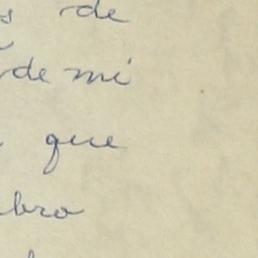 s de
de mi
que
bro